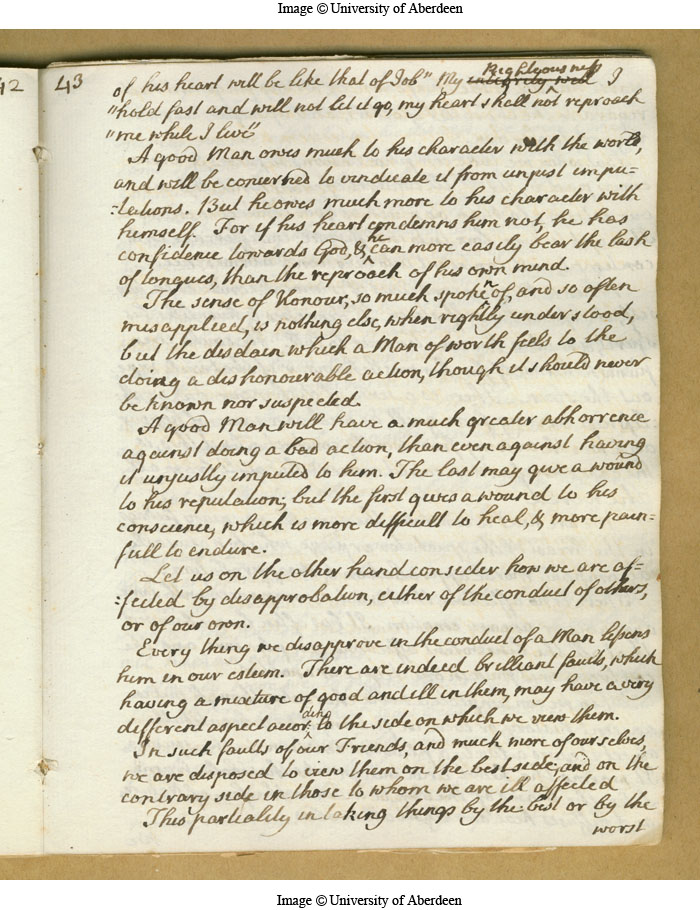 Image © University of Aberdeen
42
43
Righteousness
of his heart will be like that of Job" My integrity will I
"hold fast and will not let it go, my heart shall not reproach
"me while I live"
A good Man owes much to his character with the world,
and will be concerned to vindicate it from unjust impu-
:tations. But he owes much more to his character with
himself. For if his heart condemns him not, he has
confidence towards God, & he can more easily bear the lash
of tongues, than the reproach of his own mind.
The sense of Honour, so much spoken of, and so often
misapplied, is nothing else, when rightly understood,
but the disdain which a Man of worth feels to the
doing a dishonourable action, though it should never
be known nor suspected.
A good Man will have a much greater abhorrence
against doing a bad action, than even against having
it unjustly imputed to him. The last may give a wound
to his reputation; but the first gives a wound to his
conscience, which is more difficult to heal, & more pain-
full to endure.
Let us on the other hand consider how we are af-
:fected by disapprobation, either of the conduct of others,
or of our own.
Every thing we disapprove in the conduct of a Man lessens
him in our esteem. There are indeed brilliant faults, which
having a mixture of good and ill in them, may have a very
different aspect according to the side on which we view them.
In such faults of our Friends, and much more of ourselves,
we are disposed to view them on the best side; and on the
contrary side in those to whom we are ill affected
This partiality in taking things by the best or by the
worst
Image © University of Aberdeen